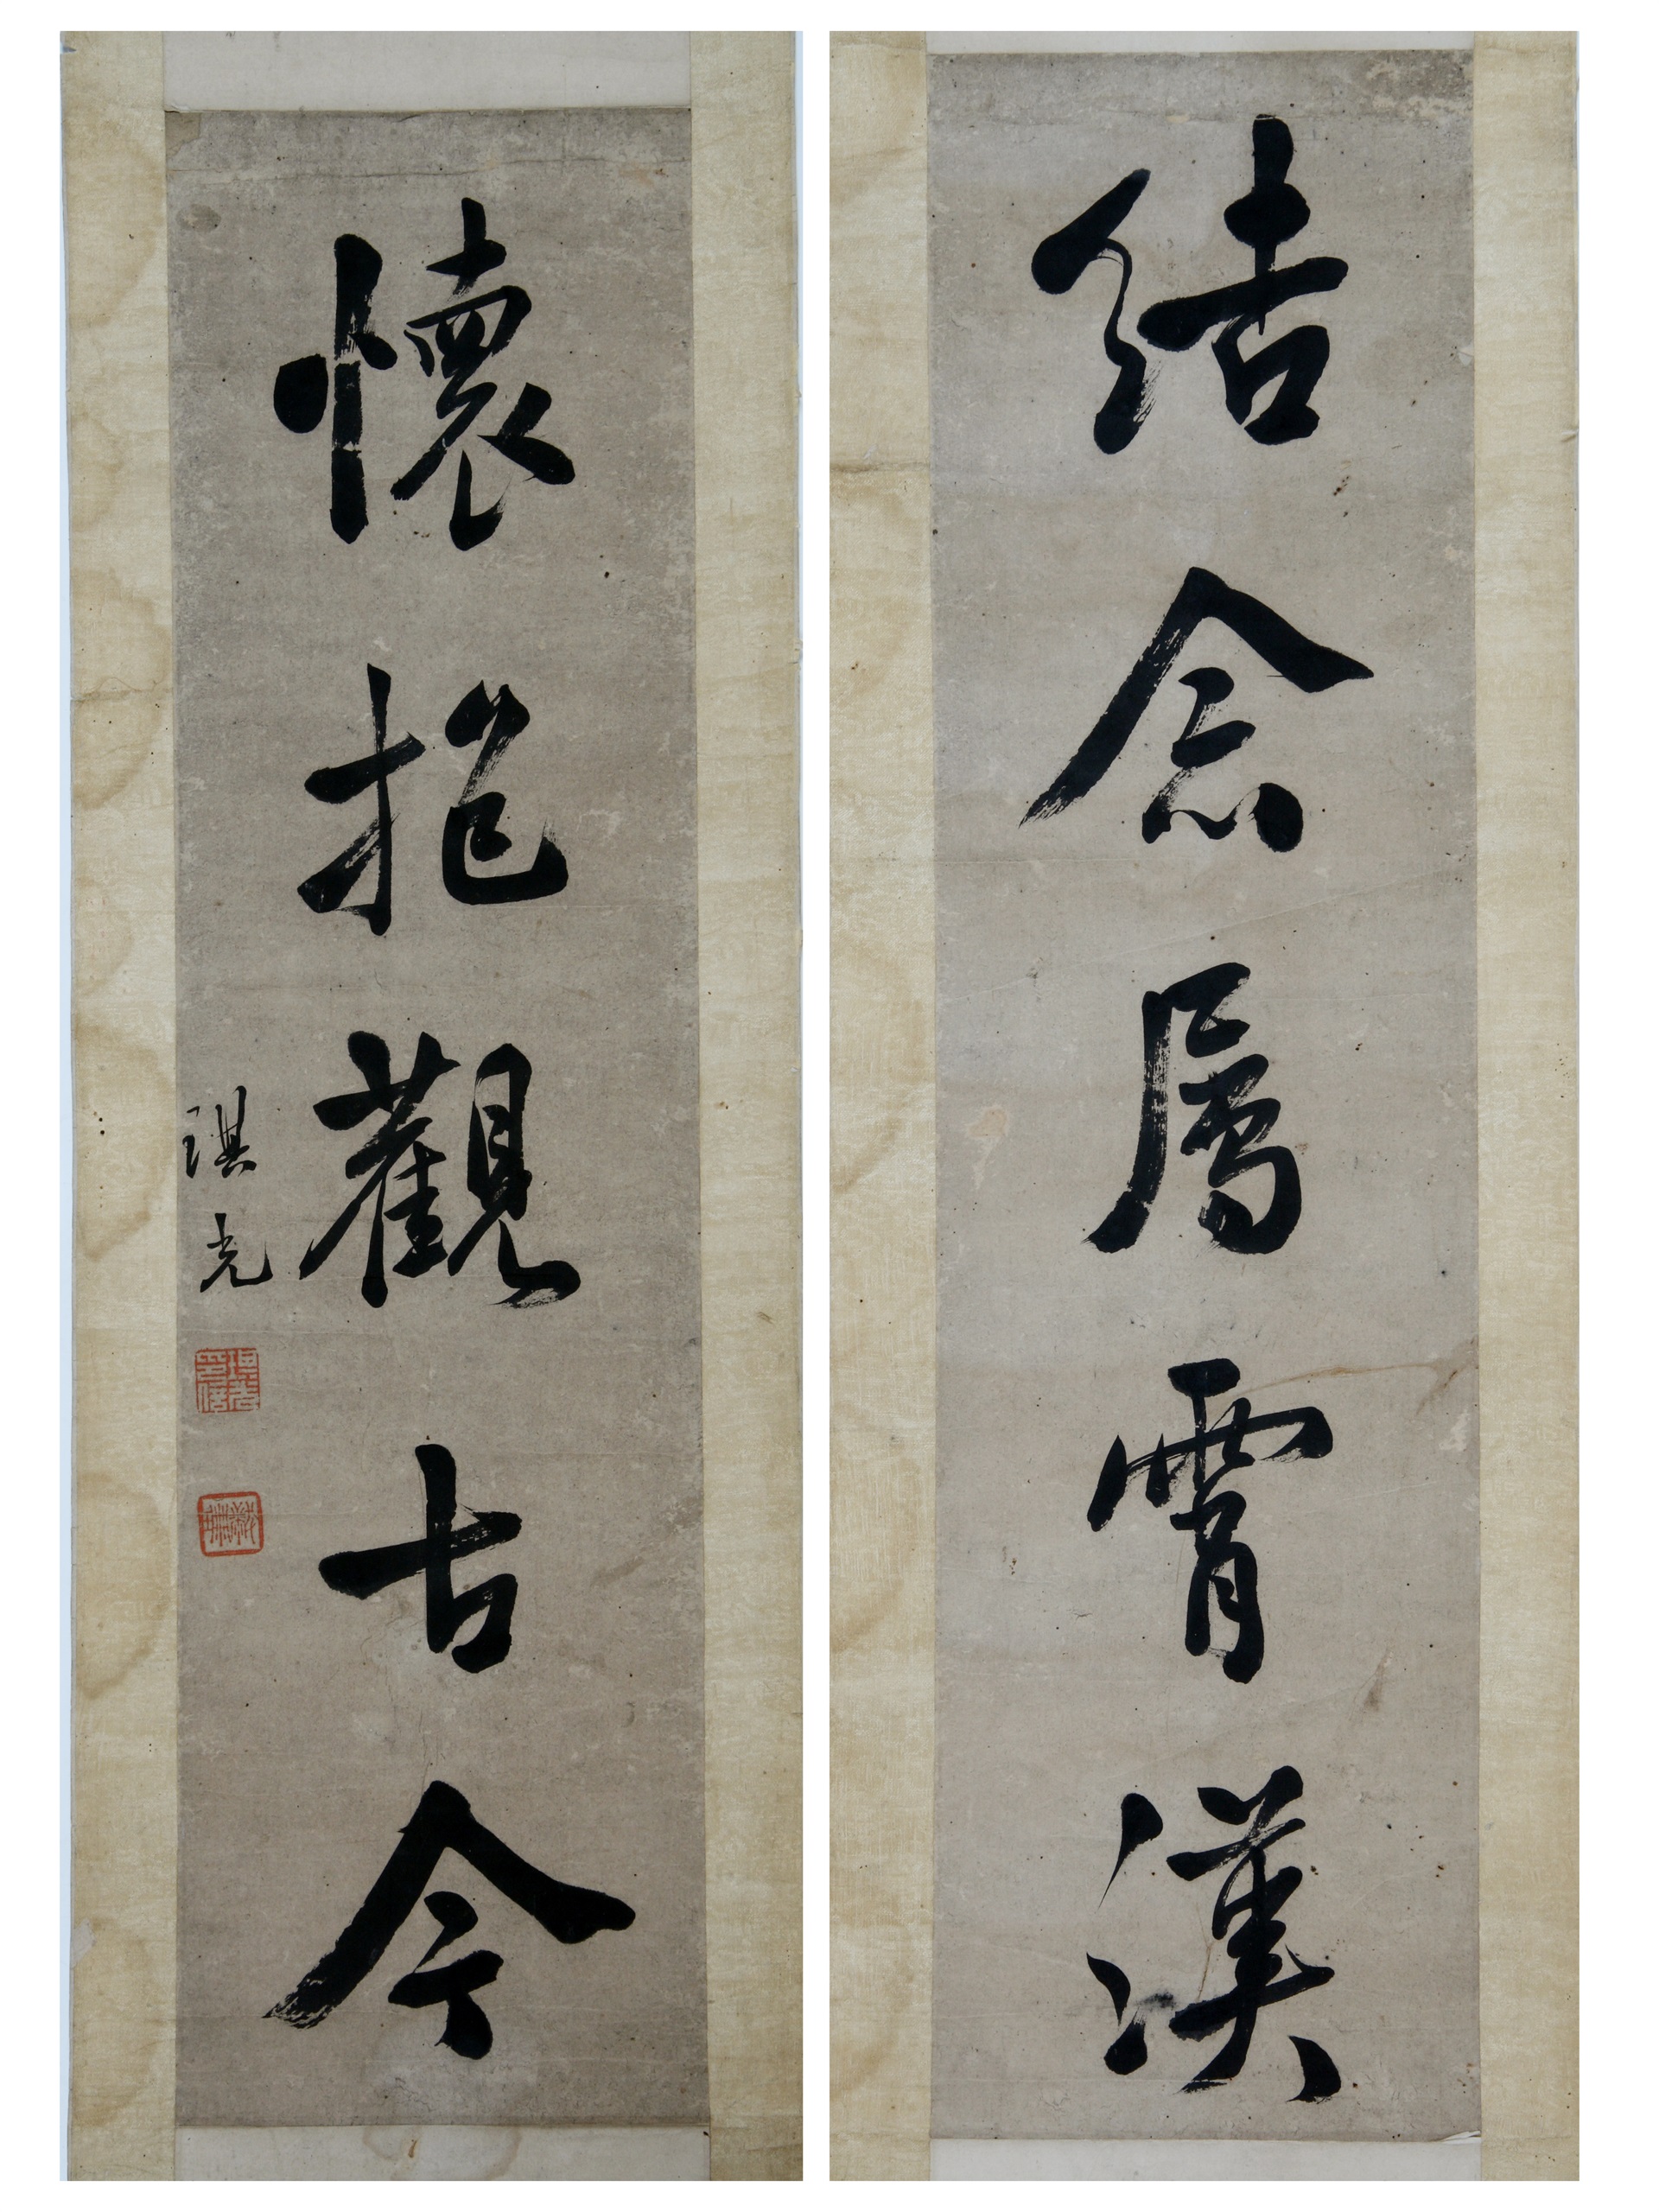 結念屬霄漢
懷抱觀古今
琪光